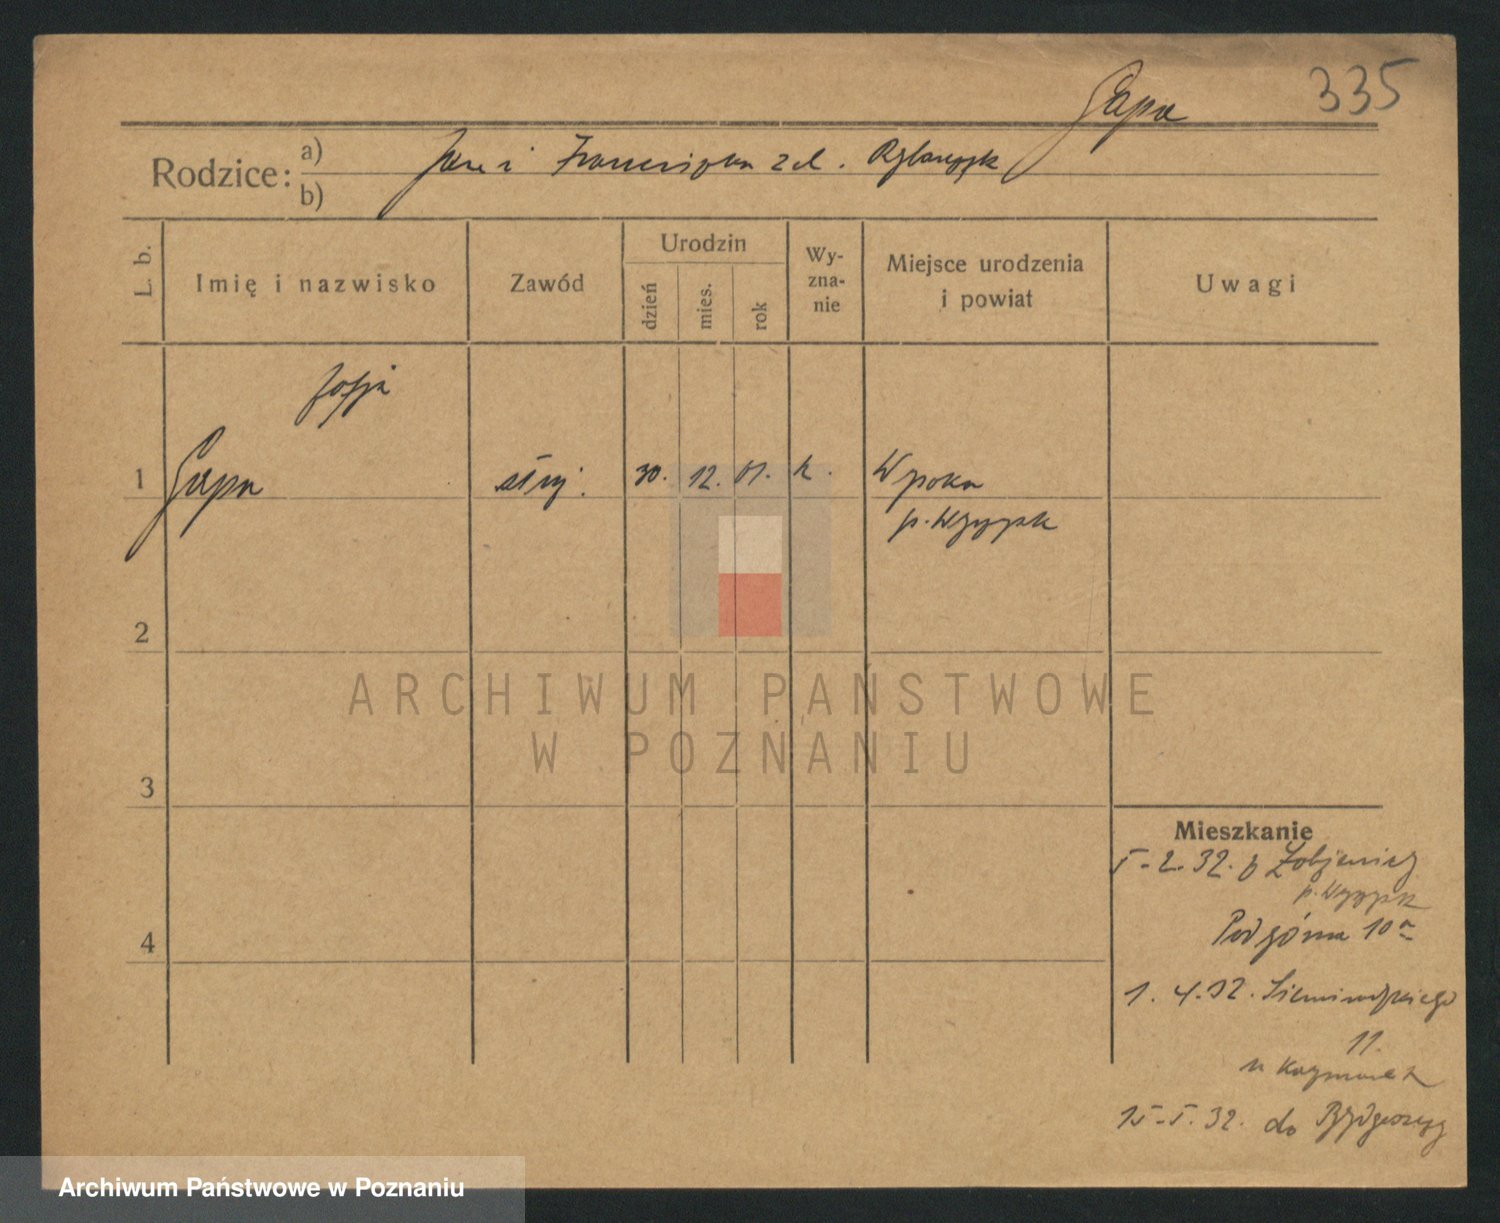 Gapa 335
Rodzice: a) Jan i Franciszka z d. Rybarczyk
b)
L. b. Imię i nazwisko Zawód Urodzin dzień mies. rok Wy-zna-nie Miejsce urodzenia i powiat Uwagi
Zofja
1 Gapa służ. 30. 12. 01. k. Wysoka
p. Wyrzysk
2
ARCHIWUM PAŃSTWOWE
W POZNANIU
3
Mieszkanie
5-2.32. p Łobżenicy
p. Wyrzysk
Podgórna 10a
4
1. 4.32. Siemiradzkiego
11.
u Kaczmarek
15-5.32. do Bydgoszczy
Archiwum Państwowe w Poznaniu